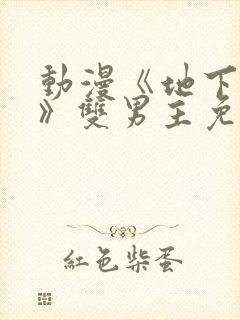 動漫《地下
》雙男主免
紅色柴蛋